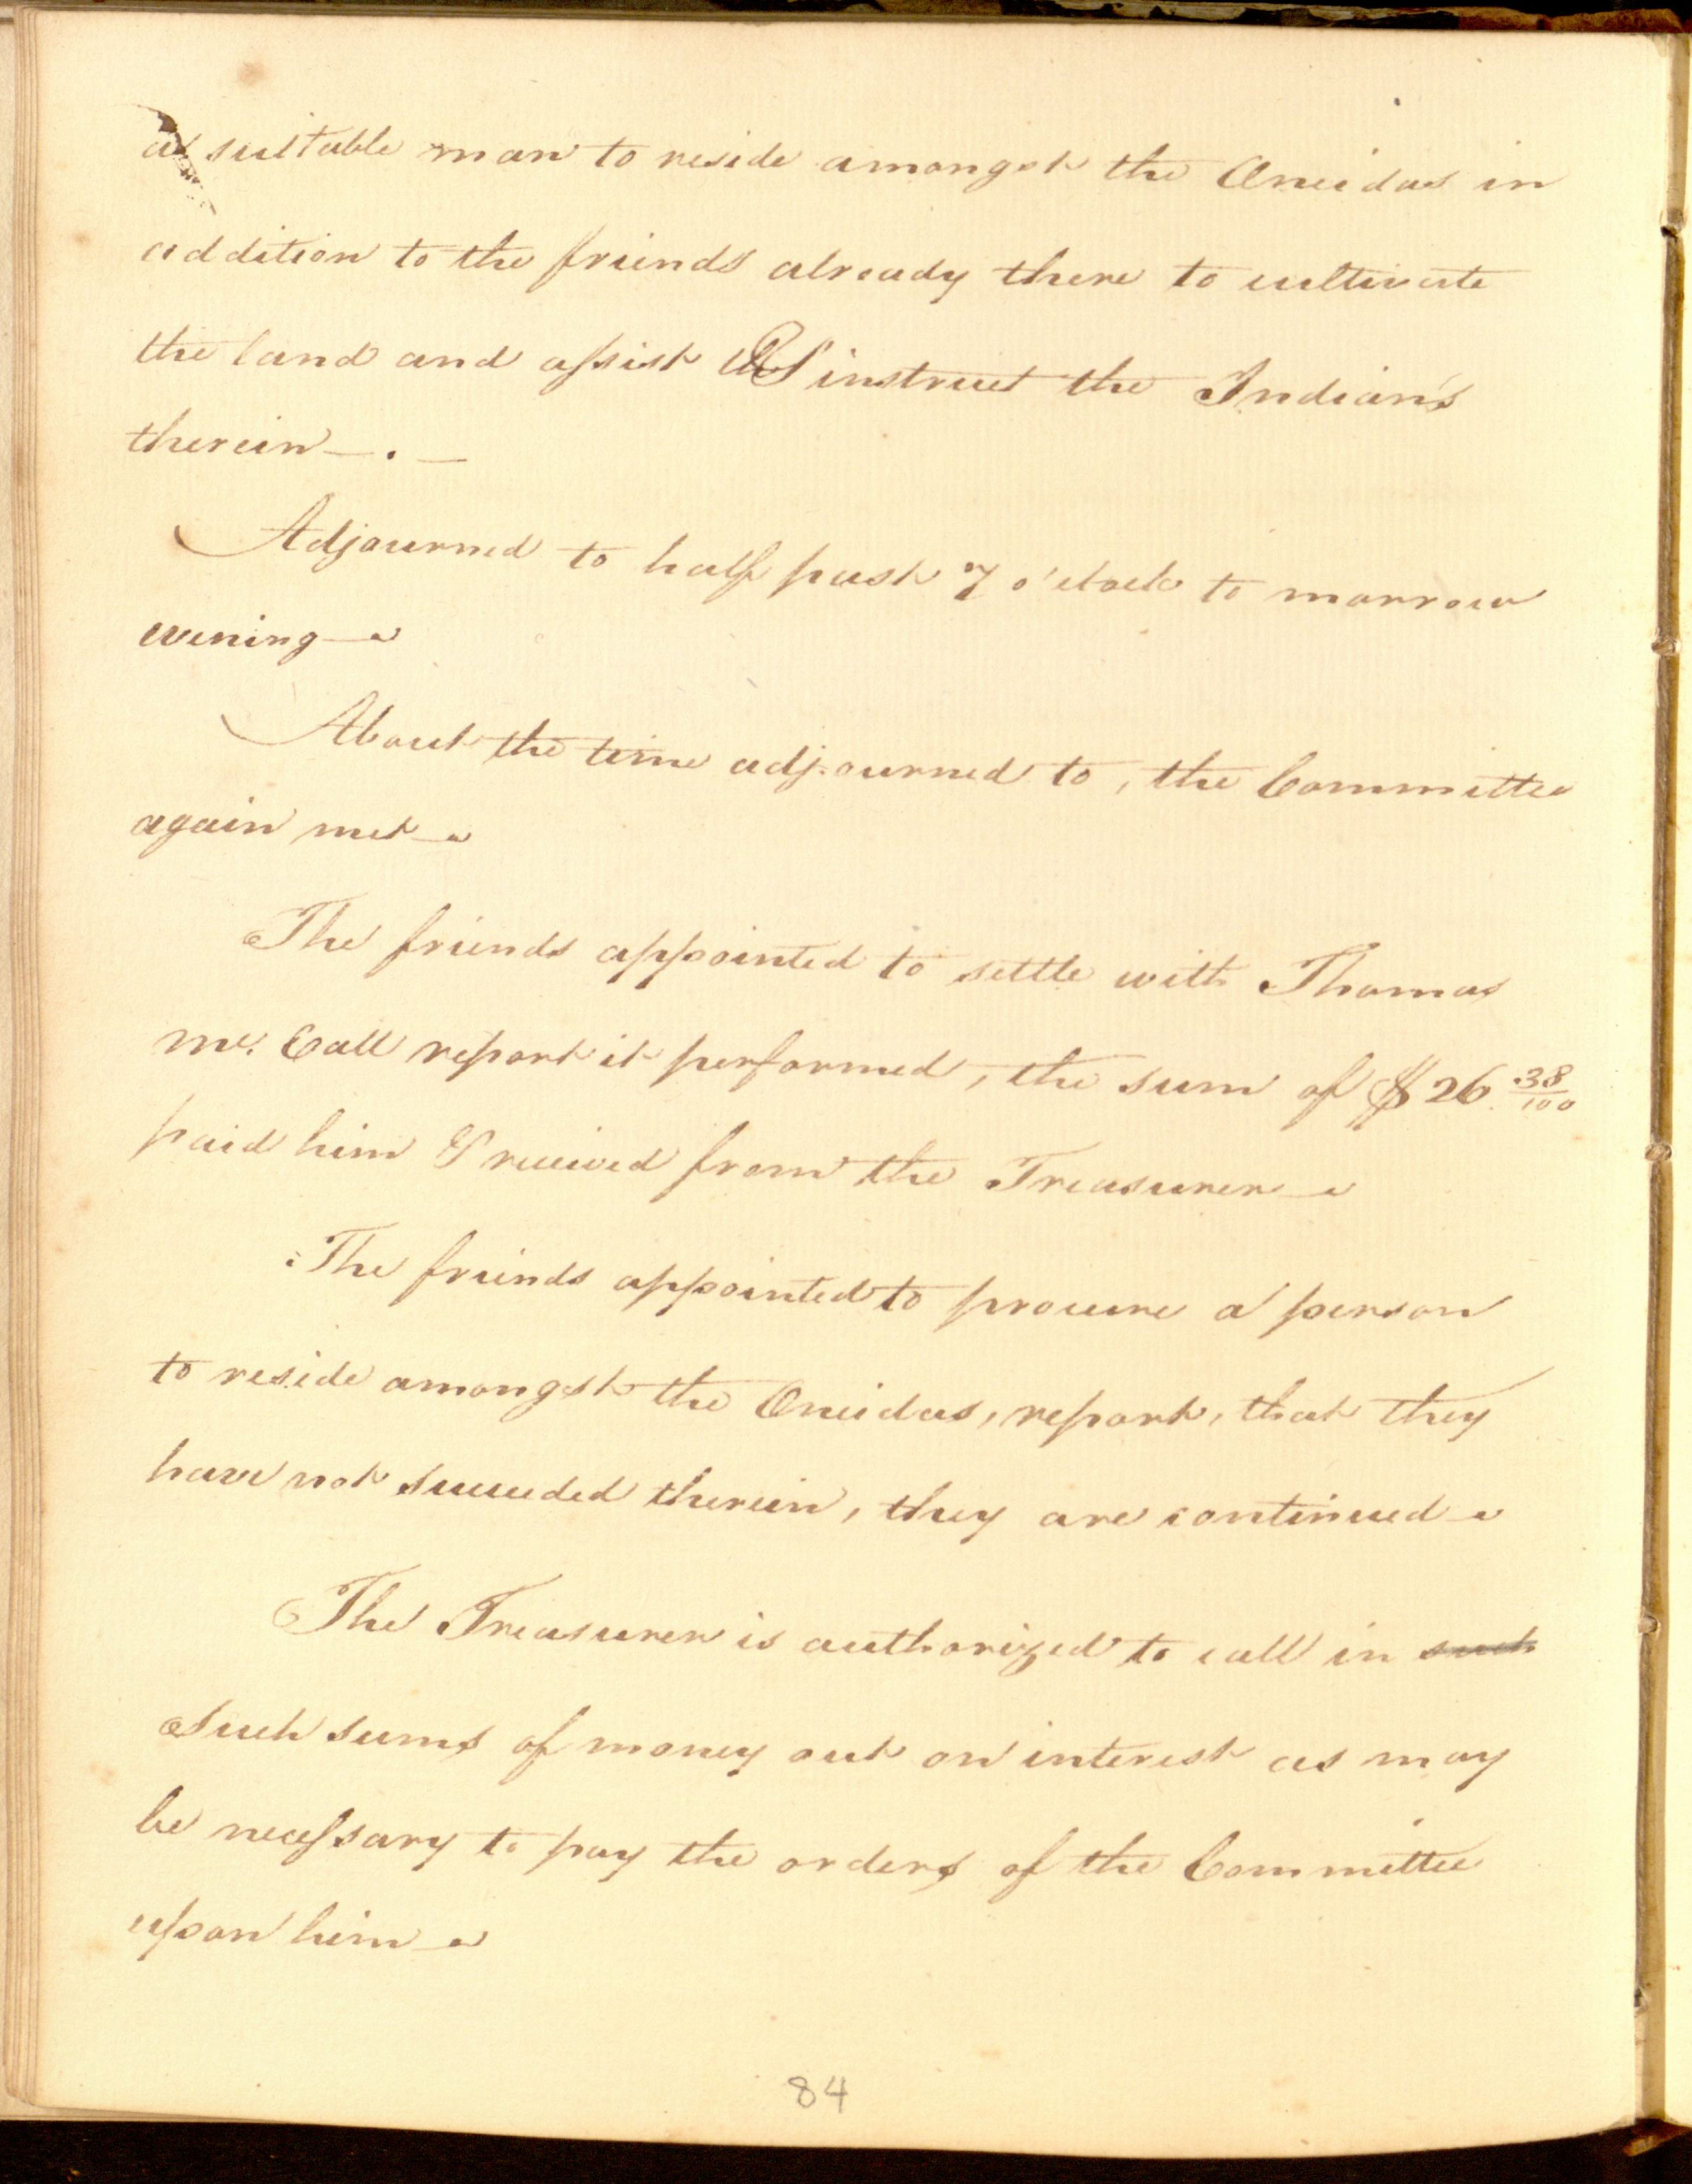 a suitable man to reside amongst the Oneidas in
addition to the friends already there to cultivate
the land and assist & instruct the Indians
therein—.—
Adjourned to half past 7 o'clock to morrow
evening—
About the time adjourned to, the Committee
again met—
The friends appointed to settle with Thomas
Mc. Call report it performed, the sum of $26 38/100
paid him & received from the Treasurer—
The friends appointed to procure a person
to reside amongst the Oneidas, report, that they
have not succeeded therein, they are continued—
The Treasurer is authorized to call in such
such sums of money out on interest as may
be necessary to pay the orders of the Committee
upon him—
84